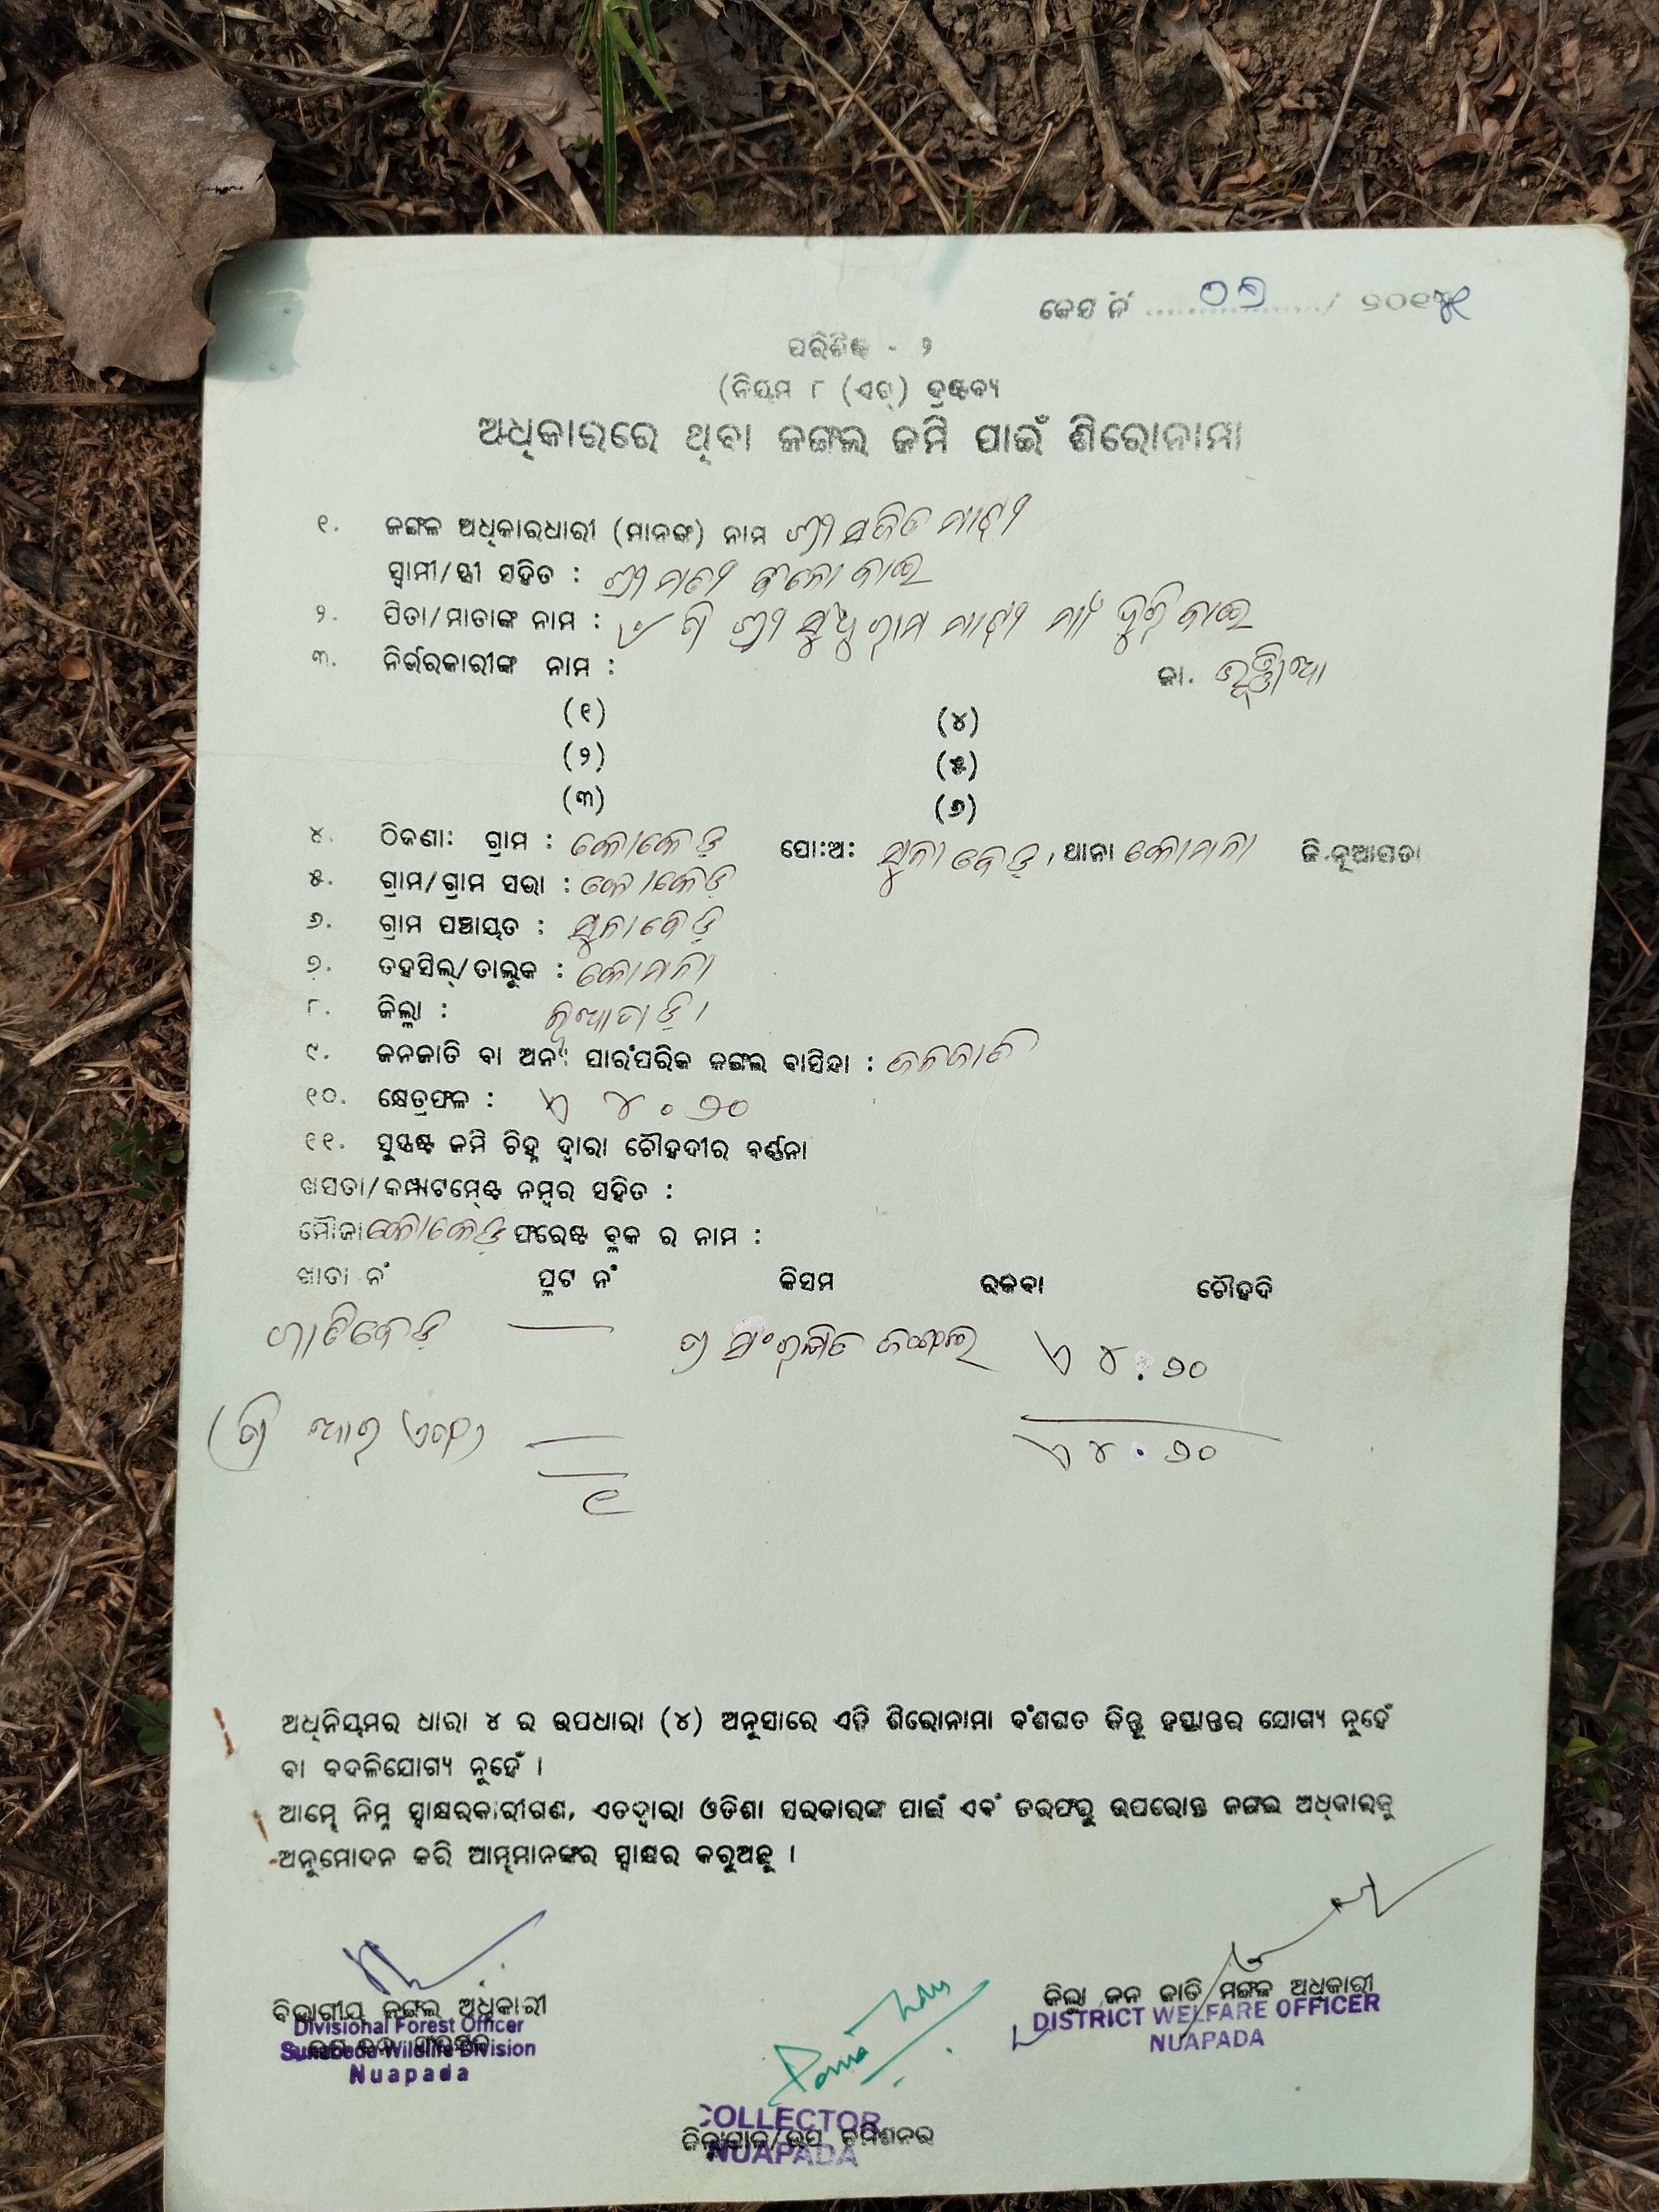 କେସ ନଂ ୦୭ / ୨୦୧୫
ପରିଶିଷ୍ଟ - ୨
(ନିୟମ ୮ (ଏଚ୍) ଦ୍ରଷ୍ଟବ୍ୟ
ଅଧିକାରରେ ଥିବା ଜଙ୍ଗଲ ଜମି ପାଇଁ ଶିରୋନାମା
୧. ଜଙ୍ଗଳ ଅଧିକାରଧାରୀ (ମାନଙ୍କ) ନାମ ଶ୍ରୀ ସଜିତ ମାଝୀ
ସ୍ୱାମୀ/ସ୍ତ୍ରୀ ସହିତ : ଶ୍ରୀମତୀ ବାଇ
୨. ପିତା/ମାତାଙ୍କ ନାମ : ଶ୍ରୀ ସୁଧୁରାମ ମାଝୀ ମାଁ ବାଇ
୩. ନିର୍ଭରକାରୀଙ୍କ ନାମ : ଜା. ଭୁଞ୍ଜିଆ
(୧) (୪)
(୨) (୫)
(୩) (୬)
୪. ଠିକଣା: ଗ୍ରାମ : କୋକେଡ଼ି ପୋ:ଅ: ସୁନାବେଡ଼ା, ଥାନା କୋମନା ଜି.ନୂଆପଡା
୫. ଗ୍ରାମ/ଗ୍ରାମ ସଭା : କୋକେଡ଼ି
୬. ଗ୍ରାମ ପଞ୍ଚାୟତ : ସୁନାବେଡ଼ା
୭. ତହସିଲ୍/ତାଲୁକ : କୋମନା
୮. ଜିଲ୍ଲା : ନୂଆପଡ଼ା
୯. ଜନଜାତି ବା ଅନ୍ୟ ପାରଂପରିକ ଜଙ୍ଗଲ ବାସିନ୍ଦା : ଜନଜାତି
୧୦. କ୍ଷେତ୍ରଫଳ : ଏ ୪.୭୦
୧୧. ସୁସ୍ପଷ୍ଟ ଜମି ଚିହ୍ନ ଦ୍ୱାରା ଚୌହଦୀର ବର୍ଣ୍ଣନା
ଖସଡା/କମ୍ପାଟମେଣ୍ଟ ନମ୍ବର ସହିତ :
ମୌଜା କୋକେଡ଼ି ଫରେଷ୍ଟ ବ୍ଲକ ର ନାମ :
ଖାତା ନଂ ପ୍ଲଟ ନଂ କିସମ ରକବା ଚୌହଦି
ସଂରକ୍ଷିତ ଜଙ୍ଗଲ ଏ ୪.୭୦
ଆର ଏଫ) ଏ ୪.୭୦
ଅଧିନିୟମର ଧାରା ୪ ର ଉପଧାରା (୪) ଅନୁସାରେ ଏହି ଶିରୋନାମା ବଂଶଗତ କିନ୍ତୁ ହସ୍ତାନ୍ତର ଯୋଗ୍ୟ ନୁହେଁ
ବା ବଦଳିଯୋଗ୍ୟ ନୁହେଁ ।
ଆମ୍ଭେ ନିମ୍ନ ସ୍ୱାକ୍ଷରକାରୀଗଣ, ଏତଦ୍ୱାରା ଓଡିଶା ସରକାରଙ୍କ ପାଇଁ ଏବଂ ତରଫରୁ ଉପରୋକ୍ତ ଜଙ୍ଗଲ ଅଧିକାରକୁ
ଅନୁମୋଦନ କରି ଆମ୍ଭମାନଙ୍କର ସ୍ୱାକ୍ଷର କରୁଅଛୁ ।
ବିଭାଗୀୟ ଜଙ୍ଗଲ ଅଧିକାରୀ
Divisional Forest Officer
Sunabeda Wildlife Division
Nuapada
ଜିଲ୍ଲା ଜନ ଜାତି ମଙ୍ଗଳ ଅଧିକାରୀ
DISTRICT WELFARE OFFICER
NUAPADA
COLLECTOR
ଜିଲ୍ଲାପାଳ/ଉପ କମିଶନର
NUAPADA